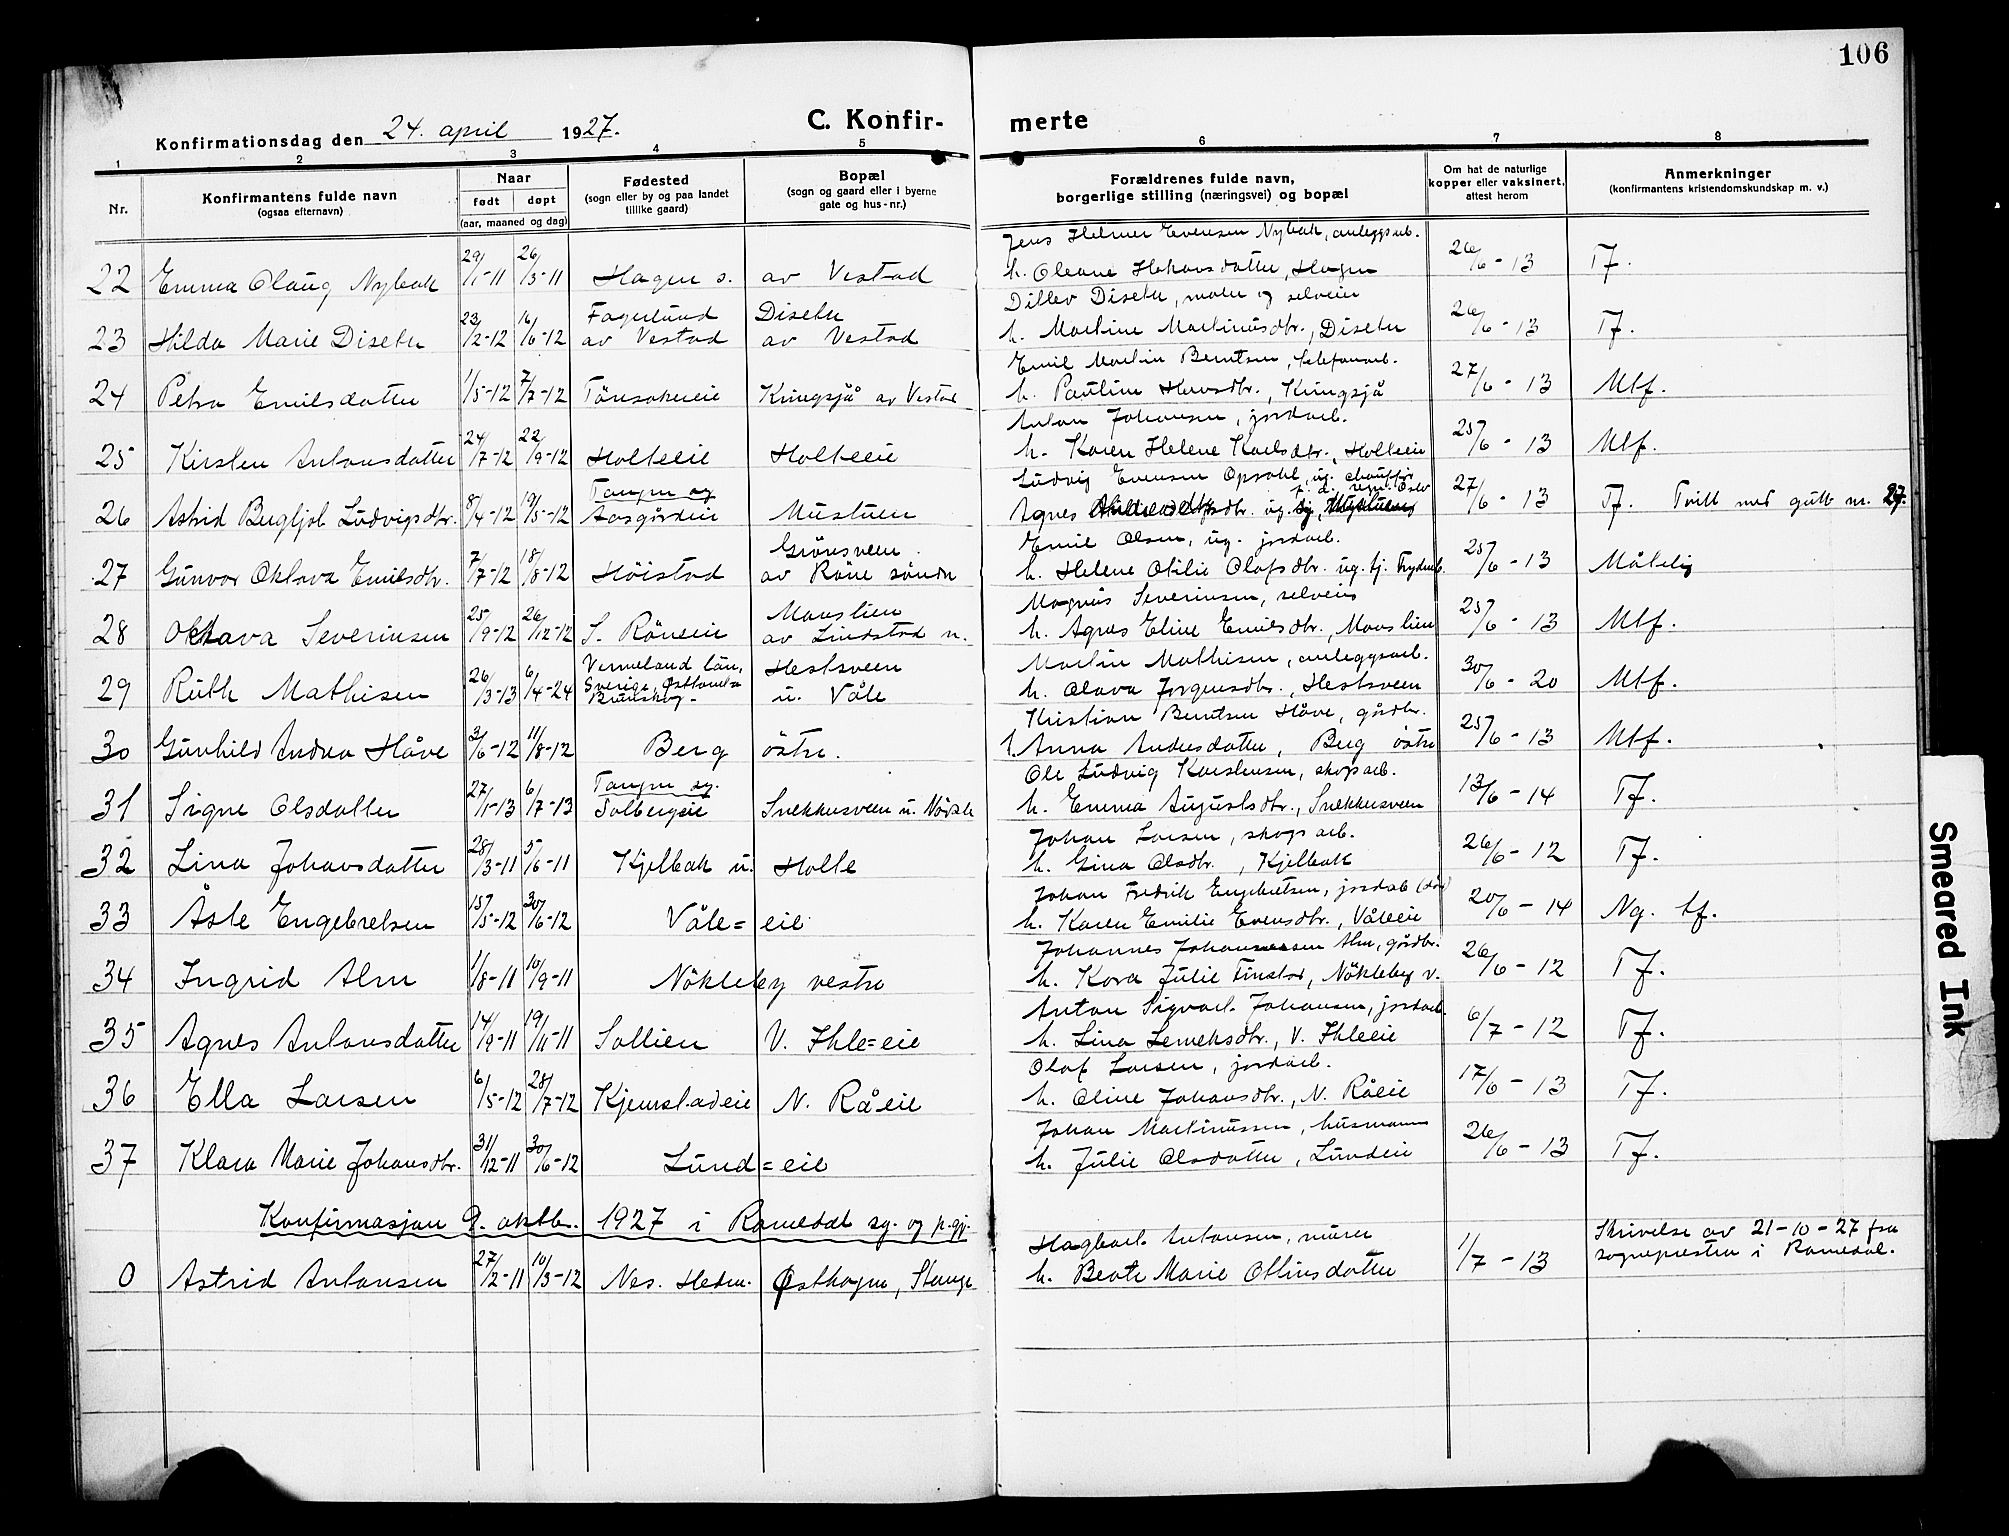 106
Konfirmationsdag den 24. april 1927.
C. Konfir- merte
1 2 3 4 5 6 7 8
Nr.
Konfirmantens fulde navn
(ogsaa efternavn)
Naar
født døpt
(aar, maaned og dag)
Fødested
(sogn eller by og paa landet
tillike gaard)
Bopæl
(sogn og gaard eller i byerne
gate og hus-nr.)
Forældrenes fulde navn,
borgerlige stilling (næringsvei) og bopæl
Om hat de naturlige
kopper eller vaksinert,
attest herom
Anmerkninger
(konfirmantens kristendomskundskap m. v.)
Jens Helmer Evensen Nybak, anleggsarb.
22 Emma Olaug Nybak 29/1-11 26/3-11 Hagen s. av Vestad h. Oleane Hakonsdatter, Hagen 26/6-13 Tf.
Fagerlund Diseter Ditlev Diseter, maler og selveier
23 Hilda Marie Diseter 23/2-12 16/6-12 av Vestad av Vestad h. Martine Martinusdtr., Diseter 26/6-13 Tf.
Emil Martin Berntsen, telefonarb.
24 Petra Emilsdatter 1/5-12 7/7-12 Tönsakereie Kringsjå av Vestad h. Pauline Hansdtr., Kringsjå 27/6-13 Mtf.
Anton Johansen, jordarb.
25 Kirsten Antonsdatter 24/7-12 22/9-12 Holteeie Holteeie h. Karen Helene Karlsdtr., Holteeie 25/6-13 Mtf.
Tangen sg Ludvig Evensen Opsahl, ug. chauffør
26 Astrid Bergljot Ludvigsdtr. 8/4-12 19/5-12 Aasgårdeie Mustuen Agnes 27/6-13 Tf. Tvill med gutt nr. 27.
Grönsveen Emil Olsen, ug. jordarb.
27 Gunvor Oktava Emilsdtr. 7/7-12 18/8-12 Höistad av Röne söndre h. Helene Otilie Olafsdtr. ug. tj. 25/6-13 Måtelig
Mooslien Magnus Severinsen, selveier
28 Oktava Severinsen 25/9-12 26/12-12 S. Röneeie av Lindstad n. h. Agnes Eline Emilsdtr., Mooslien 25/6-13 Mtf.
Vermeland län, Hestsveen Martin Mathisen, anleggsarb.
29 Ruth Mathisen 26/3-13 6/4-24 Sverige, Brunskog- u. Våle h. Olava Jorgensdtr., Hestsveen 30/6-20 Mtf.
Kristian Berntsen Håve, gårdbr.
30 Gunhild Andrea Håve 3/6-12 11/8-12 Berg östre. h. Anna Andersdatter, Berg östre 25/6-13 Mtf.
Tangen sg. Ole Ludvig Karstensen, skogsarb.
31 Signe Olsdatter 27/1-13 6/7-13 Solbergeie Snekkersveen u. h. Emma Augustsdtr., Snekkersveen 13/6-14 Tf.
Johan Larsen, skogsarb.
32 Lina Johansdatter 28/3-11 5/6-11 Kjelbak u. Holte h. Gina Olsdtr., Kjelbak 26/6-12 Tf.
Johan Fredrik Engebretsen, jordarb (död)
33 Åsle Engebretsen 15/5-12 30/6-12 Våle=eie h. Karen Emilie Evensdtr., Våleeie 20/6-14 Ng. tf.
Johannes Johannessen Alm, gårdbr.
34 Ingrid Alm 1/8-11 10/9-11 Nökleby vestre h. Kora Julie Finstad, Nökleby v. 26/6-12 Tf.
Anton Sigvart Johansen, jordarb.
35 Agnes Antonsdatter 14/9-11 19/11-11 Sollien V. Ihle=eie h. Lina Lemeksdtr., V. Ihleeie 6/7-12 Tf.
Olaf Larsen, jordarb.
36 Ella Larsen 6/5-12 28/7-12 Kjemstadeie N. Råeie h. Oline Johansdtr., N. Råeie 17/6-13 Tf.
Johan Martinussen, husmann
37 Klara Marie Johansdtr. 31/12-11 30/6-12 Lund=eie h. Julie Olsdatter, Lundeie 26/6-13 Tf.
Konfirmasjon 9. oktbr. 1927 i Romedal sg. og p.gj.
Hagbart Antonsen, murer Skrivelse av 21-10-27 fra
0 Astrid Antonsen 27/2-11 10/3-12 Nes. Hedm. Østhagen, Stange h. Beate Marie Ottinsdatter 1/7-13 sognepresten i Romedal.
Smeared Ink